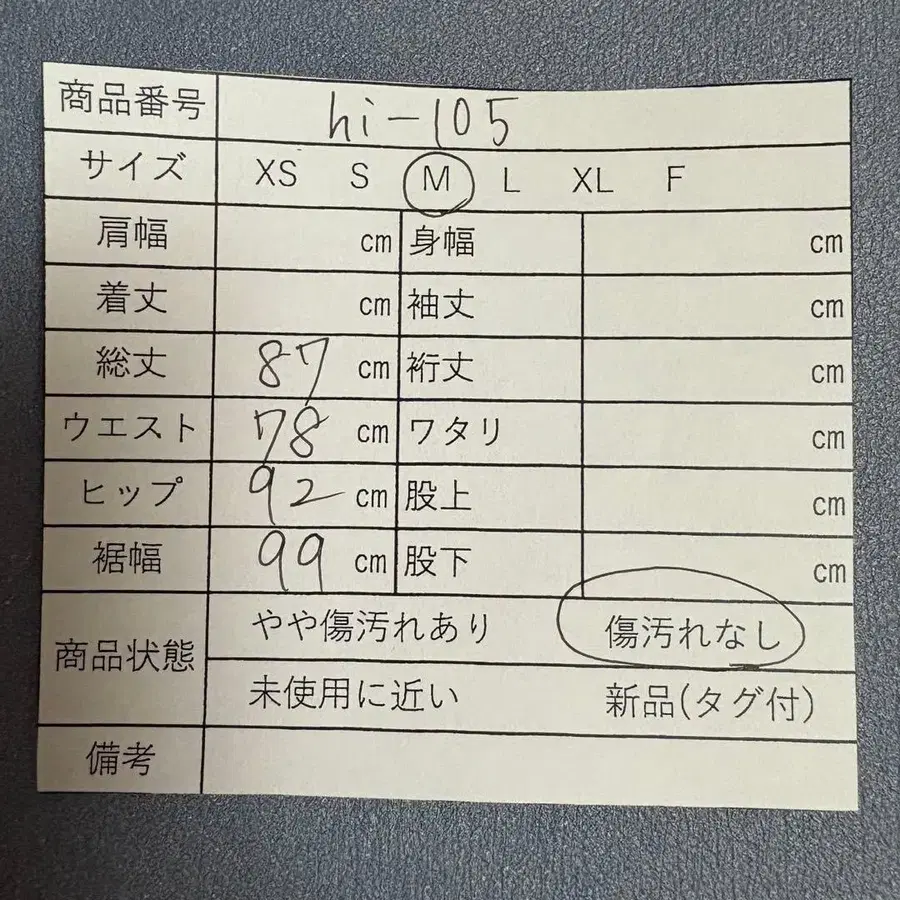 商品番号 hi-105
サイズ XS S M L XL F
肩幅 cm 身幅 cm
着丈 cm 袖丈 cm
総丈 87 cm 裄丈 cm
ウエスト 78 cm ワタリ cm
ヒップ 92 cm 股上 cm
裾幅 99 cm 股下 cm
商品状態 やや傷汚れあり 傷汚れなし
未使用に近い 新品(タグ付)
備考